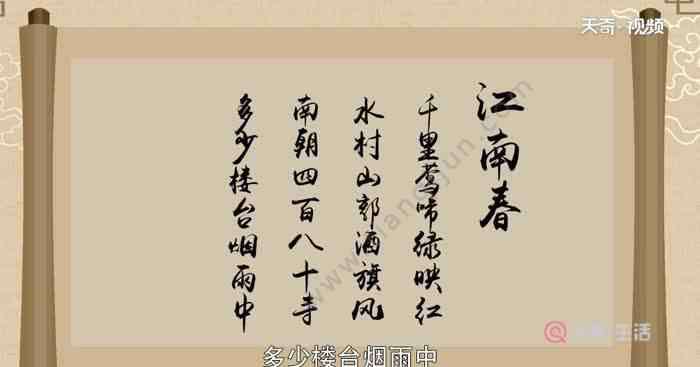 天奇·视频
江南春
千里莺啼绿映红
水村山郭酒旗风
南朝四百八十寺
多少楼台烟雨中
多少楼台烟雨中